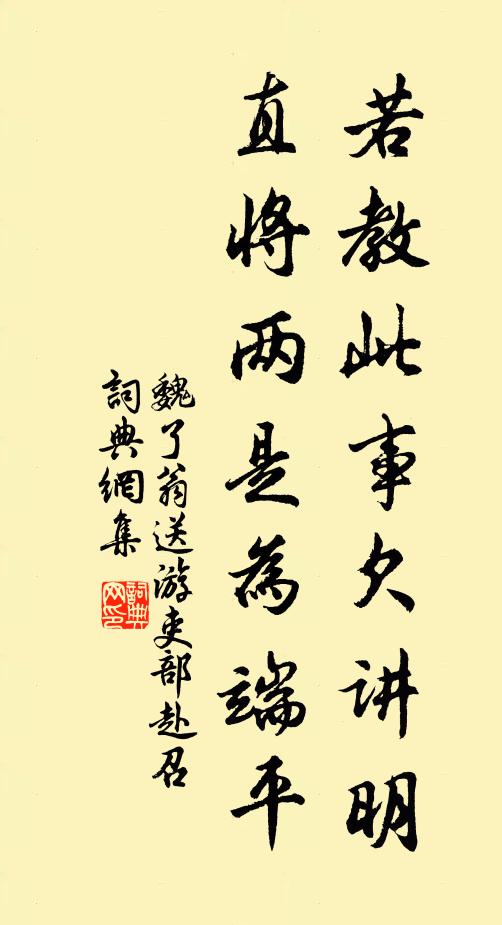 若教此事欠讲明
直将两是为端平
魏了翁送游吏部赴召
詞典網集
詞典
网印